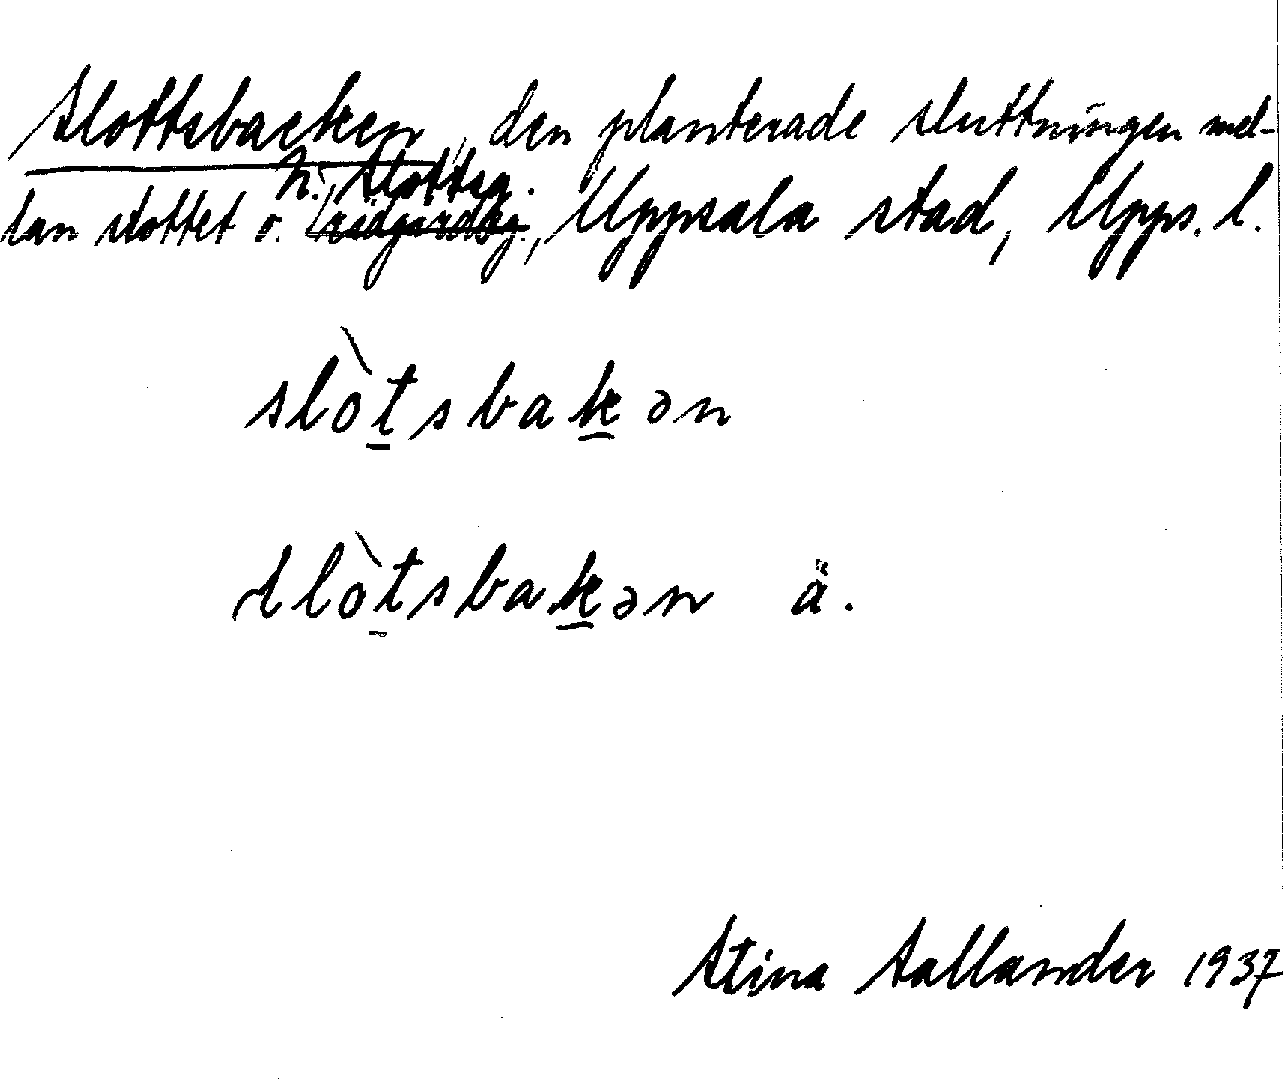 Slottsbacken, den planterade sluttningen mel-
N. Slottsg.
lan slottet o. Trädgårdsg., Uppsala stad, Upps. l.
slòtsbakən
slòtsbakən ä.
Stina Sallander 1937